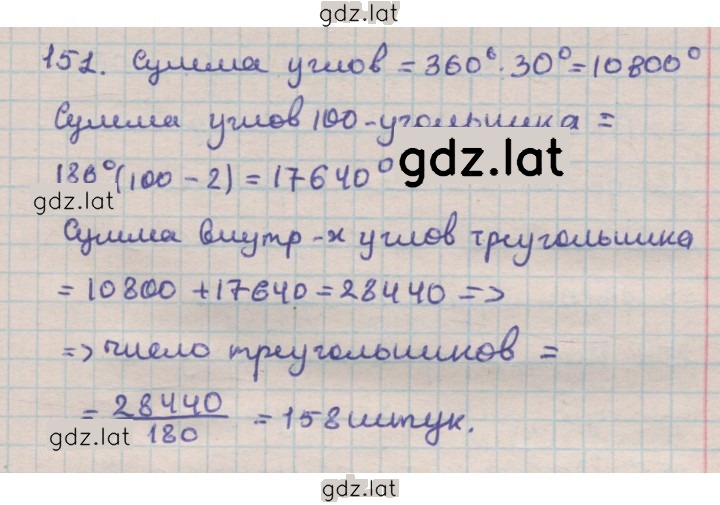 gdz.lat
151. Сумма углов = 360° · 30° = 10800°
Сумма углов 100-угольника =
gdz.lat
180°(100 - 2) = 17640°
gdz.lat
Сумма внутр-х углов треугольника
= 10800 + 17640 = 28440 =>
=> число треугольников =
= 28440/180 = 158 штук.
gdz.lat
gdz.lat